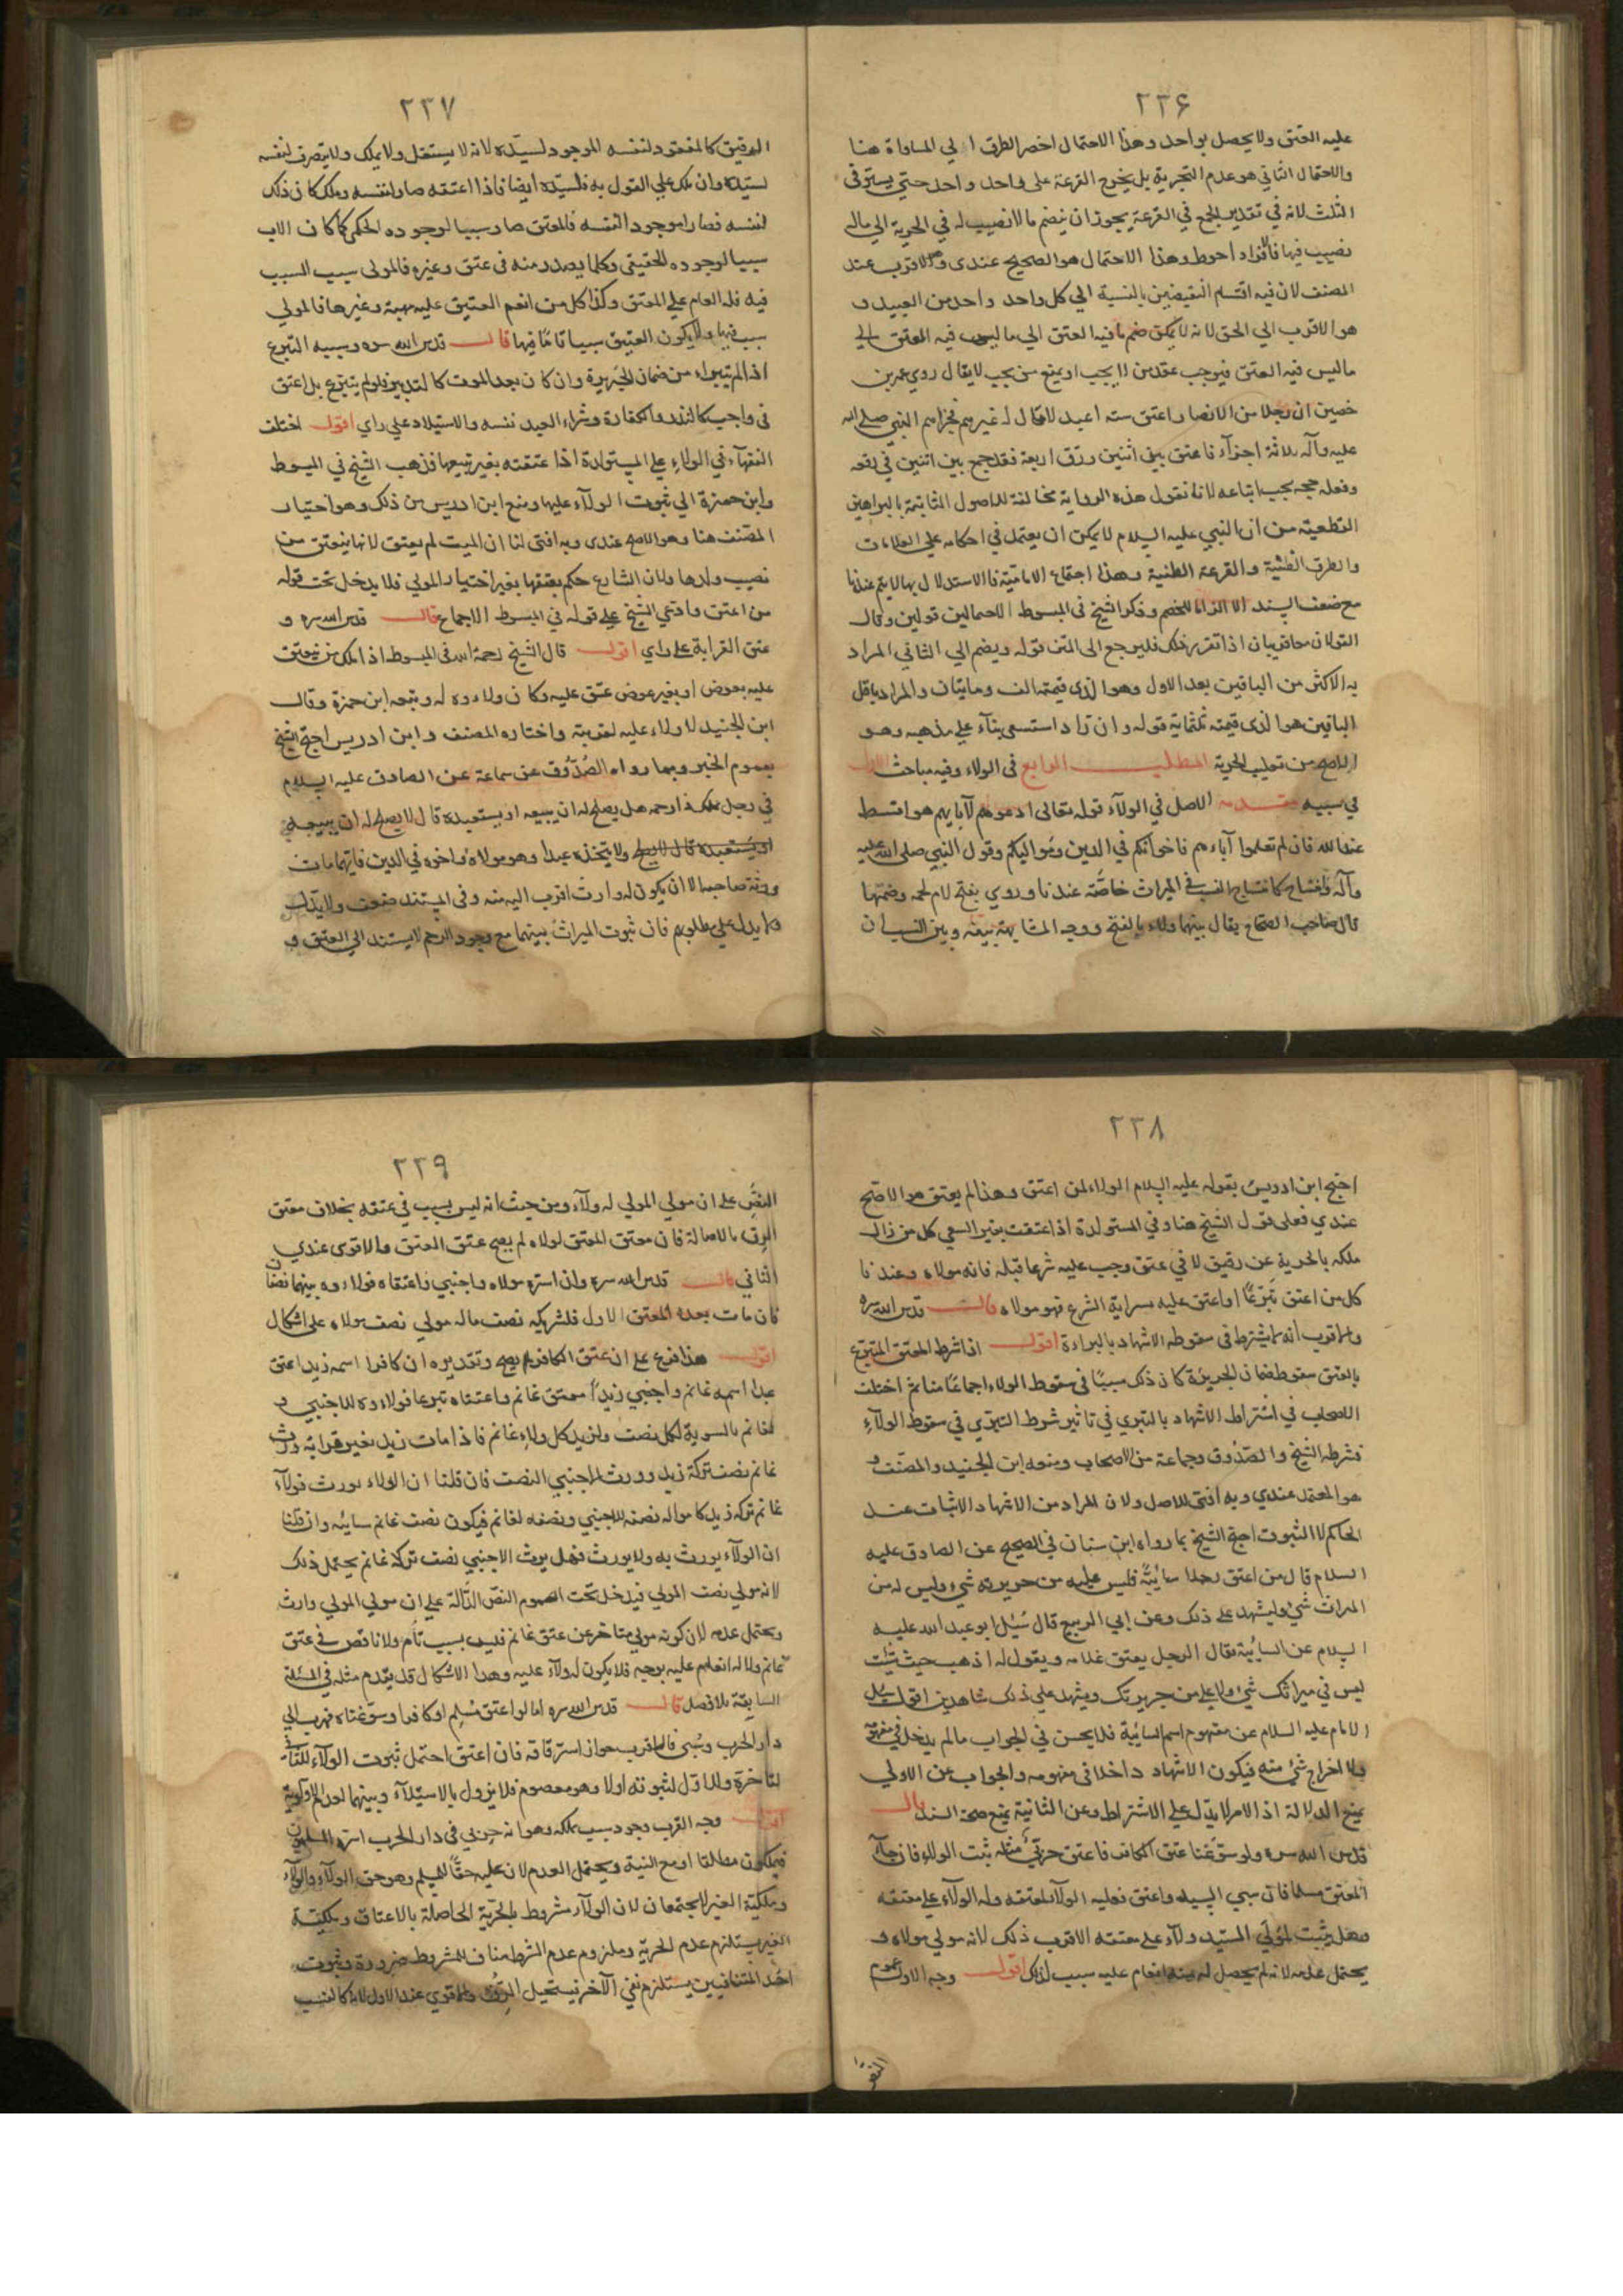 ٢٣۶
عليه العتق ولا يحصل بواحد وهذا الاحتمال اخصر الطرق الي المساواة هنا
والاحتمال الثاني هو عدم التجزية بل يخرج القرعة على واحد واحد حتي يستوفى
الثلث لانه في تقدير الجمع في القرعة يجوز ان يضم مالا نصيب له في الحرية الي ماله
نصيب فيها فالافراد احوط وهذا الاحتمال هو الصحيح عندى وهو الاقرب عند
المصنف لان فيه اقتسام النقيضين بالنسبة الي كل واحد واحد من العبيد و
هو الاقرب الي الحق لانه لا يمكن ضم ما فيه العتق الي ما ليس فيه العتق الي
ما ليس فيه العتق فيوجب عتق من لا يجب او يمنع من يجب لا يقال روي عمر بن
حصين ان رجلا من الانصار اعتق سته اعبد لا مال له غيرهم فجزاهم النبي صلى الله
عليه وآله ثلاثة اجزآء فاعتق اثنين وارق اربعة فقد جمع بين اثنين في رقعه
وفعله حجه يجب اتباعه لانا نقول هذه الرواية مخالفة للاصول الثابتة بالبراهين
القطعية من ان النبي عليه السلام لا يمكن ان يعتمد في احكامه علي العلامات
والطرق الظنية والقرعة الظنية وهذا اجماع الامامية فالاستدلال بها لا يتم عندنا
مع ضعف السند الا الزاما للخصم وذكر الشيخ في المبسوط الاحتمالين قولين وقال
القولان متقاربان اذا تقرر ذلك فلنرجع الى المتن قوله ويضم الي الثاني المراد
به الاكثر من الباقين بعد الاول وهو الذى قيمته الف ومايتان والمراد باقل
الباقين هو الذى قيمته ثلثماية قوله وان زاد استسعى بنآء علي مذهبه وهو
الاصح من تغليب الحرية المطلب الرابع فى الولاء وفيه مباحث الاول
في سببه مقدمه الاصل في الولآء قوله تعالى ادعوهم لآبايهم هو اقسط
عند الله فان لم تعلموا آباءهم فاخوانكم في الدين ومواليكم وقول النبي صلى الله عليه
وآله كالنسب في الميراث خاصة عندنا وروي بفتح لام لحمه وضمتها
قال صاحب الصحاح يقال بينهما ولاء بالفتح ووجه المشابهة بينه وبين النسب ان
٢٣٧
الرقيق كالمفقود لنفسه الموجود لسيده لانه لا يستقل ولا يملك ولا يتصرف لنفسه
لسيده وان ملك علي القول به فلسيده ايضا فاذا اعتقه صار لنفسه وملك كان ذلك
لنفسه فصار موجودا لنفسه فالمعتق صار سببا لوجوده الحكمي كما كان الاب
سببا لوجوده الحقيقي وكلما يصدر منه في عتق وغيره فالمولى سبب السبب
فيه فله انعام علي المعتق وكذا كل من انعم العتيق عليه بهبة وغيرها فالمولي
سبب فيها ولا يكون العتيق سببا تاما فيها قال قدس الله سره وسببه التبرع
اذا لم يتبراء من ضمان الجريرة وان كان بعد الموت كالتدبير فلو لم يتبرع بل اعتق
في واجب كالنذر والكفارة وشراء العبد نفسه والاستيلاد علي راي اقول اختلف
الفقهآء في الولاء علي المستولدة اذا عتقت بغير تبيعها فذهب الشيخ في المبسوط
وابن حمزة الي ثبوت الولآء عليها ومنع ابن ادريس من ذلك وهو اختيار
المصنف هنا وهو الاصح عندى وبه افتى لنا ان الميت لم يعتق لانها ينعتق من
نصيب ولدها ولان الشارع حكم بعتقها بغير اختيار المولي فلا يدخل تحت قوله
من اعتق وادعي الشيخ علي قوله في المبسوط الاجماع قال قدس الله سره و
عتق القرابة علي راي اقول قال الشيخ رحمة الله في المبسوط اذا ملك من ينعتق
عليه بعوض او بغير عوض عتق عليه وكان ولاءوه له وتبعه ابن حمزة وقال
ابن الجنيد لا ولاء عليه لقربته واختاره المصنف وابن ادريس احتج الشيخ
بعموم الخبر وبما رواه الصدوق عن سماعة عن الصادق عليه السلام
في رجل ملك ذا رحمه هل يصلح له ان يبيعه او يستعبده قال لا يصلح له ان يبيعه
او يستعبده قال لا يصلح ولا يتخذه عبدا وهو مولاه واخوه في الدين فايهما مات
ورثه صاحبه الا ان يكون له وارث اقرب اليه منه وفى المستند ضعف ولا دلالة
فلا يدل علي مطلوبهم فان ثبوت الميراث بينهما مع وجود الرحم لا يستند الي العتق و
٢٣٨
احتج ابن ادريس بقوله عليه السلام الولاء لمن اعتق وهذا لم يعتق هو الاصح
عندي فعلى قول الشيخ هنا وفي المستولدة اذا عتقت بغير السعي كل من زال
ملكه بالحرية عن رقيق لا في عتق وجب عليه شرعا قبله فانه مولاه وعندنا
كل من اعتق تبرعا او اعتق عليه بسراية الشرع فهو مولاه قال قدس الله سره
والاقرب انه لا يشترط فى سقوطه الاشهاد بالبراءة اقول اذا شرط المعتق المتبرع
بالعتق سقوط ضمان الجريرة كان ذلك سببا في سقوط الولاء اجماعا منا ثم اختلف
الاصحاب في اشتراط الاشهاد بالتبري في تاثير شرط التبري في سقوط الولآء
فشرطه الشيخ والصدوق وجماعة من الاصحاب ومنعه ابن الجنيد والمصنف و
هو المعتمد عندي وبه افتى للاصل ولان المراد من الاشهاد الاثبات عند
الحاكم لا الثبوت احتج الشيخ بما رواه ابن سنان في الصحيح عن الصادق عليه
السلام قال من اعتق رجلا سائبة فليس عليه من جريرته شيء وليس له من
الميراث شئ وليشهد علي ذلك وعن ابي الربيع قال سئل ابو عبد الله عليه
السلام عن السائبة فقال الرجل يعتق غلامه ويقول له اذهب حيث شئت
ليس في ميراثك شئ ولا علي من جريرتك ويشهد علي ذلك شاهدين اقول سئل
الامام عليه السلام عن مفهوم اسم السائبة فلا يحسن في الجواب مالم يدخل في مفهومه
ولا اخراج شئ منه فيكون الاشهاد داخلا في مفهومه والجواب عن الاولي
بمنع الدلالة اذ الامر لا يدل علي الاشتراط وعن الثانية بمنع صحة السند قال
قدس الله سره ولو سوغنا عتق الكافر فاعتق حربي مثله ثبت الولاء فان جآء
المعتق مسلما فان سبي السيد واعتق فعليه الولآء لمعتقه وله الولآء علي معتقه
وهل يثبت لمولي السيد ولآء علي معتقه الاقرب ذلك لانه مولي مولاه و
يحتمل عدمه لانه لم يحصل له منه انعام عليه سبب لذلك اقول وجه الاول عموم
٢٣٩
النص علي ان مولي المولي له ولآء ومن حيث انه ليس بسبب في عتقه بخلاف معتق
الرق بالاصالة فان معتق المعتق لولاه لم يصح عتق المعتق والاقوى عندي
الثاني قال قدس الله سره وان استره مولاه واجنبي فاعتقاه فولاءوه بينهما نصفان
فان مات بعده المعتق الاول فلشريكه نصف ماله مولي نصف مولاه على اشكال
اقول هذا فرع علي ان عتق الكافر يصح وتقديره ان كافرا اسمه زيد اعتق
عبدا اسمه غانم واجنبي زيدا معتق غانم واعتقاه تبرعا فولاءوه للاجنبي و
لغانم بالسوية لكل نصف ولزيد كل ولاء غانم فاذا مات زيد بغير قرابة ورث
غانم نصف تركة زيد وورث الاجنبي النصف فان قلنا ان الولاء يورث فولآء
غانم تركه زيد كامواله نصفه للاجنبي ونصفه لغانم فيكون نصف غانم سائبه وان قلنا
ان الولآء يورث به ولا يورث فهل يرث الاجنبي نصف تركة غانم يحتمل ذلك
لانه مولي نصف المولي فيدخل تحت عموم النص الدالة علي ان مولي المولي وارث
ويحتمل عدمه لان كونه مولي متاخر عن عتق غانم فليس بسبب تام ولا ناقص في عتق
غانم ولا له انعام عليه بوجه فلا يكون له ولآء عليه وهذا الاشكال قد يقدم مثله في المسئلة
السابقة بلا فصل قال قدس الله سره اما لو اعتق مسلم او كافر وسوغناه فهرب الي
دار الحرب وسبي فالاقرب جواز استرقاقه فان اعتق احتمل ثبوت الولآء للثاني
لتاخره وللاول لثبوته اولا وهو معصوم فلا يزول بالاستيلآء وبينهما لعدم الاولوية
اقول وجه القرب وجود سبب ملكه وهو انه حربي في دار الحرب استره المسلمون
فيملكون مطلقا او مع النية ويحتمل العدم لان عليه حقا لمسلم وهو حق الولآء والولآء
وملكية الغير لا يجتمعان لان الولآء مشروط بالحرية الحاصلة بالاعتاق وملكية
الغير يستلزم عدم الحرية وملزوم عدم الشرط مناف للمشروط ضرورة وثبوت
احد المتنافيين يستلزم نفي الآخر فيستحيل الرق والاقوي عند الاول لان كالنسب